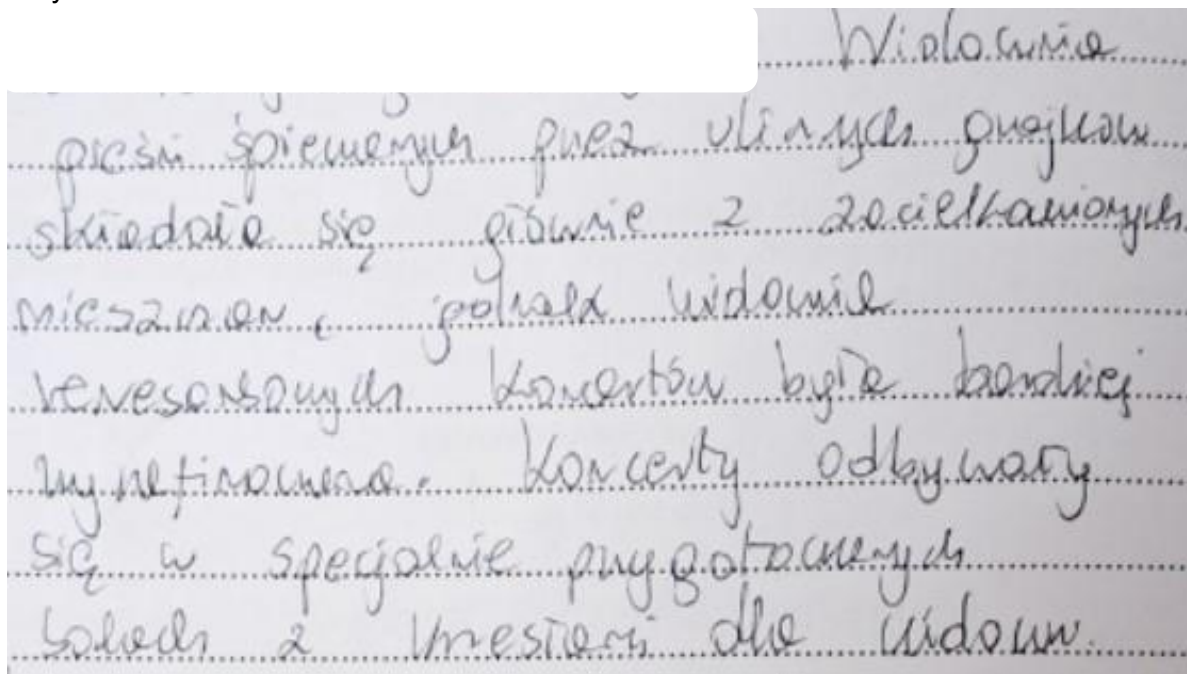 Widownia
pieśni śpiewanych przez ulicznych grajków
składała się głównie z zaciekawionych
mieszczan, jednak widownia
renesansowych koncertów była bardziej
wyrafinowana. Koncerty odbywały
się w specjalnie przygotowanych
salach z krzesłami dla widowni.